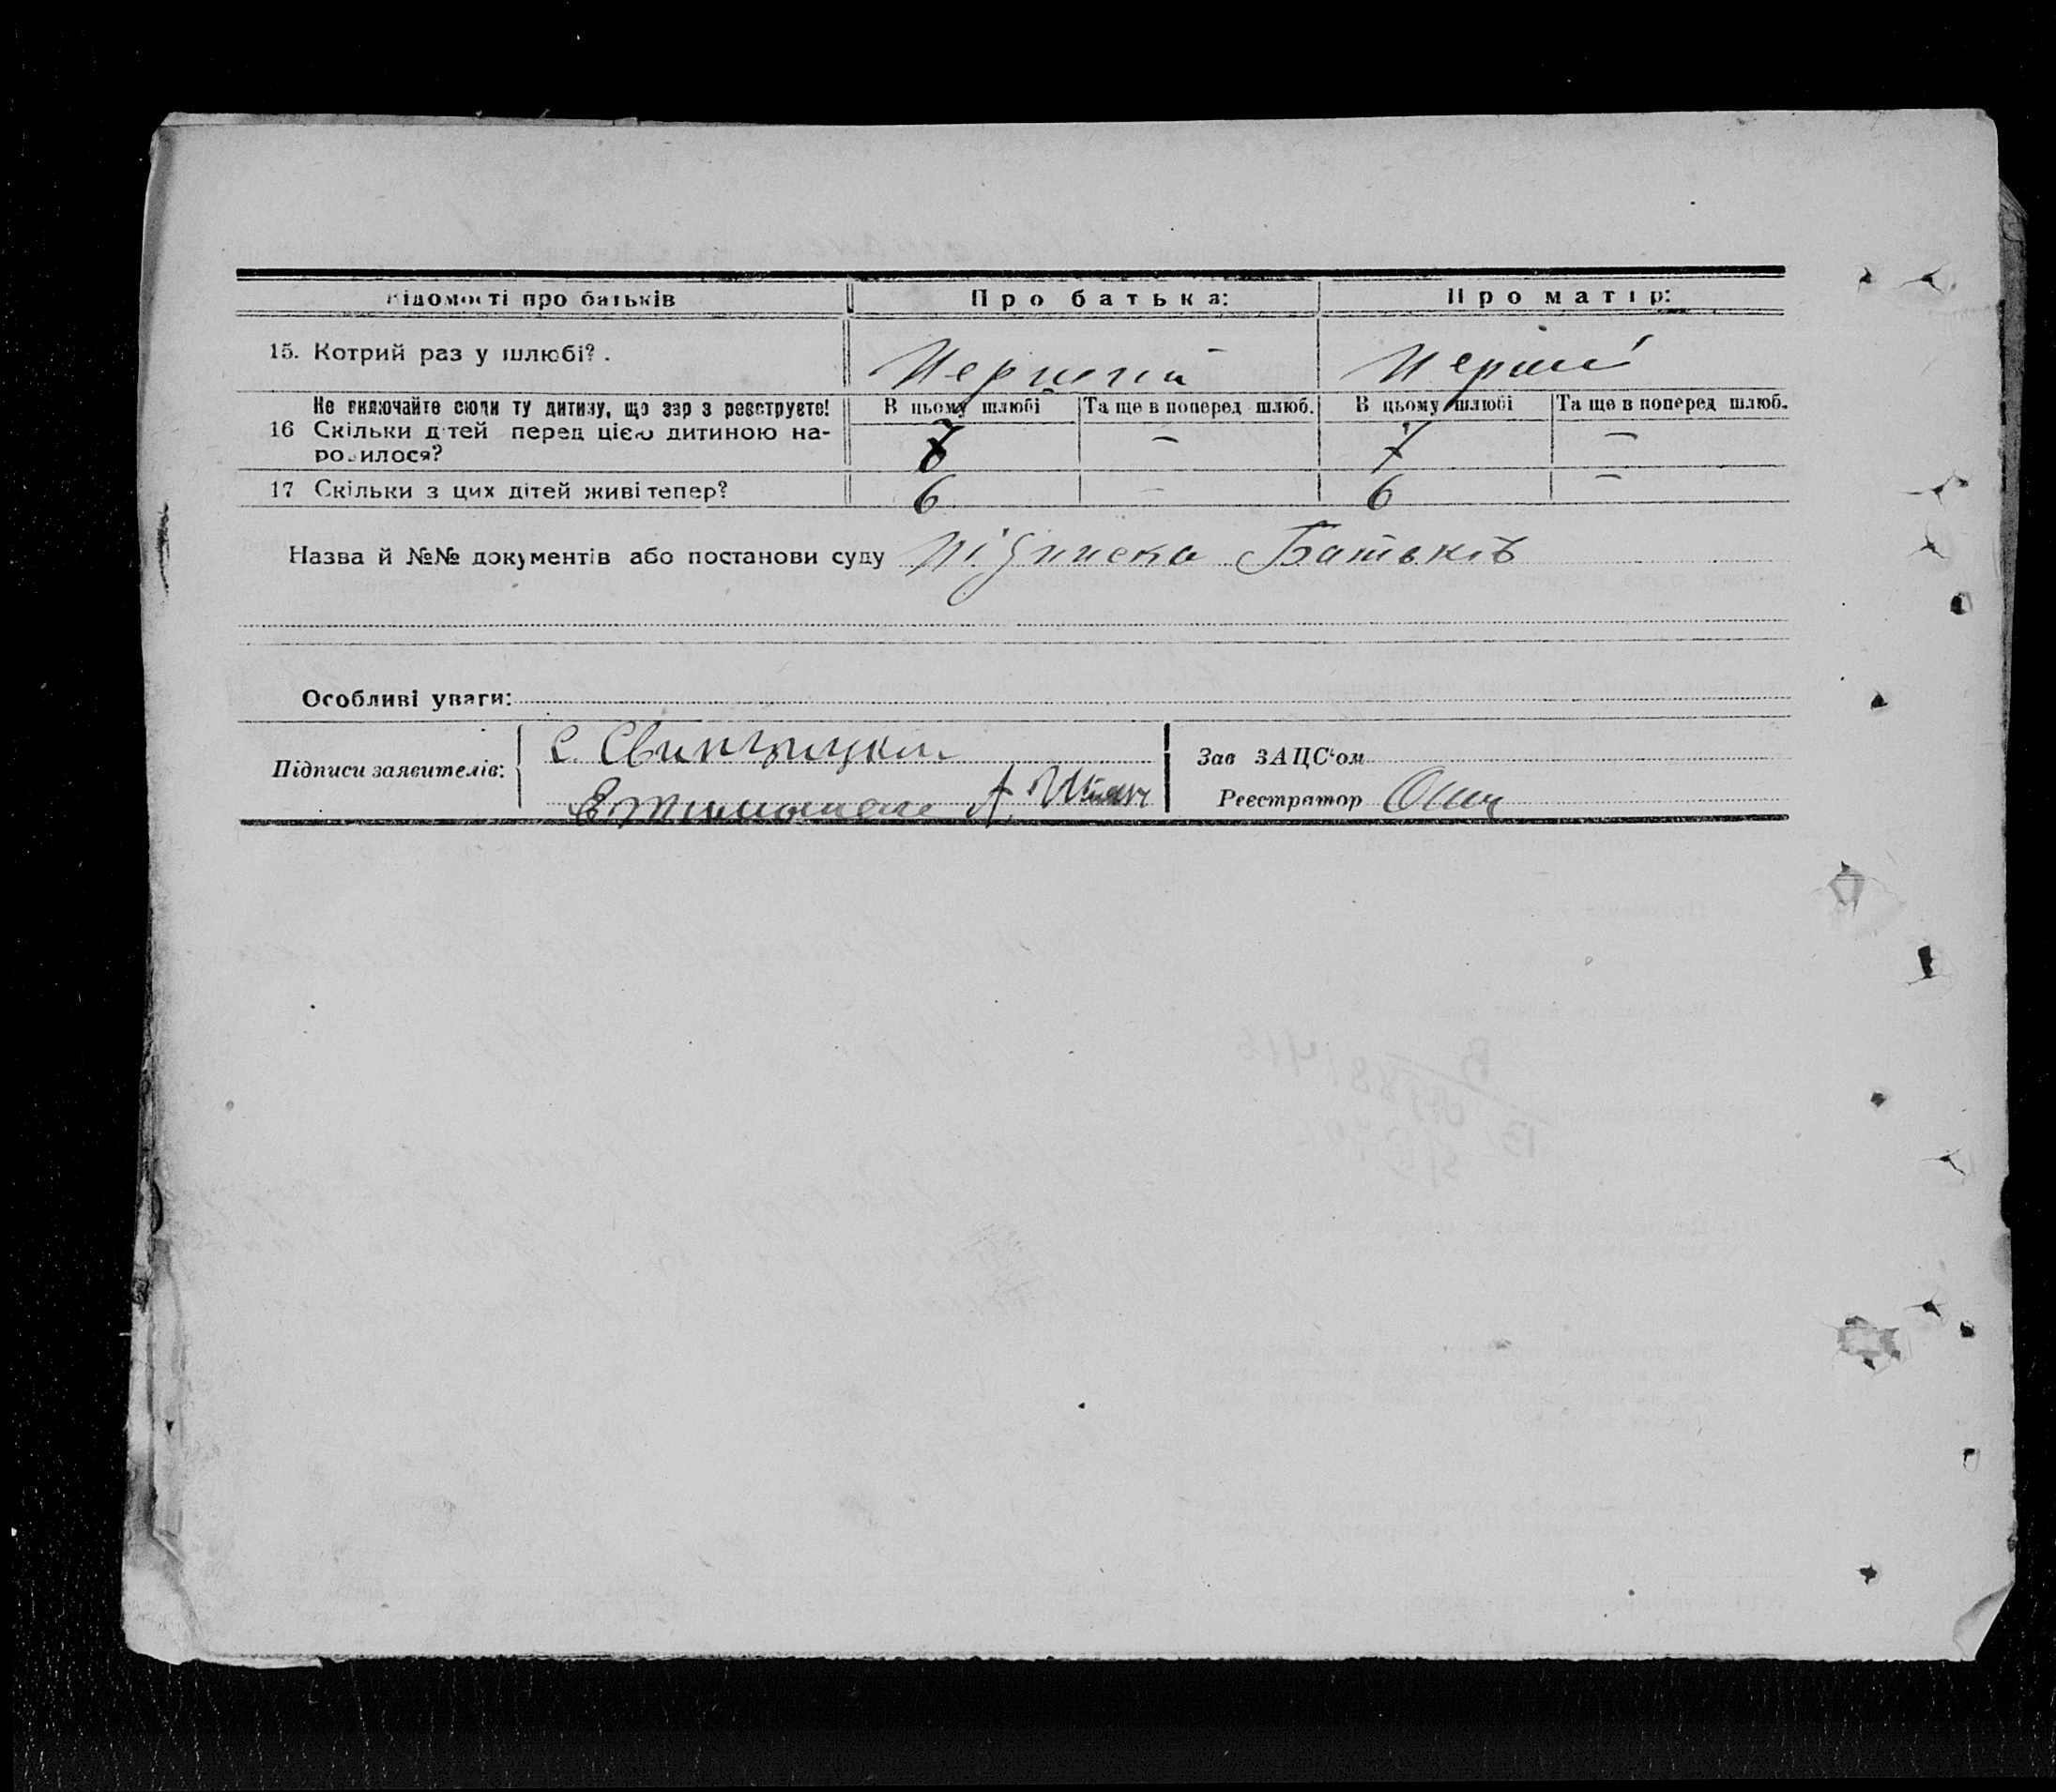 Відомості про батьків Про батька: Про матір:
15. Котрий раз у шлюбі? . Перший Перший
Не включайте сюди ту дитину, що зар з реєструєте! В цьому шлюбі Та ще в поперед шлюб. В цьому шлюбі Та ще в поперед шлюб.
16 Скільки дітей перед цією дитиною на- 7 — 7 —
родилося?
17 Скільки з цих дітей живі тепер? 6 — 6 —
Назва й №№ документів або постанови суду підписка Батьків
Особливі уваги:
Підписи заявителів: С
А.
Зав ЗАЦС'ом
Реєстратор